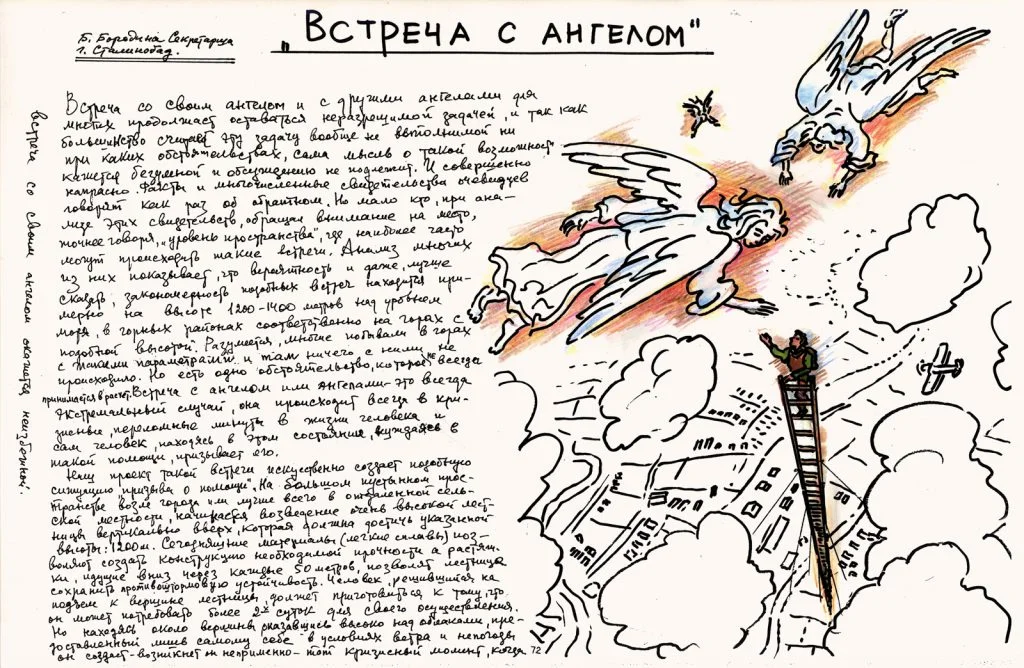 Б. Бородина Секретарша
г. Сталинобад.
„ВСТРЕЧА С АНГЕЛОМ"
Встреча со своим ангелом и с другими ангелами для
многих продолжает оставаться неразрешимой задачей, и так как
большинство считает эту задачу вообще не выполнимой ни
при каких обстоятельствах, сама мысль о такой возможност
кажется безумной и обсуждению не подлежит. И совершенно
напрасно. Факты и многочисленные свидетельства очевидцев
говорят как раз об обратном. Но мало кто, при ана-
лизе этих свидетельств, обращал внимание на место,
точнее говоря, „уровень пространства", где наиболее часто
могут происходить такие встречи. Анализ многих
из них показывает, что вероятность и даже, лучше
сказать, закономерность подобных встреч находится при-
мерно на высоте 1200-1400 метров над уровнем
моря, в горных районах соответственно на горах с
подобной высотой. Разумеется, многие побывали в горах
с такими параметрами, и там ничего с ними не
происходило. Но есть одно обстоятельство, которое не всегда
принимается в расчет. Встреча с ангелом или ангелами - это всегда
экстремальный случай, она происходит всегда в кри-
зисные, переломные минуты в жизни человека и
сам человек, находясь в этом состоянии, нуждаясь в
такой помощи, призывает его.
Наш проект такой встречи искуственно создает подобную
ситуацию „призыва о помощи". На большом пустынном прос-
транстве возле города или лучше всего в отдаленной сель-
ской местности, начинается возведение очень высокой лест-
ницы вертикально вверх, которая должна достичь указанной
высоты: 1200 м. Сегодняшние материалы (легкие сплавы) поз-
воляют создать конструкцию необходимой прочности а растяж-
ки, идущие вниз через каждые 50 метров, позволят лестнице
сохранить противоштормовую устойчивость. Человек, решившийся на
подъем к вершине лестницы, должет приготовиться к тому, что
он может потребовать более 2х суток для своего осуществления.
Но находясь около вершины, оказавшись высоко над облаками, пре-
доставленный лишь самому себе в условиях ветра и непогоды
он создает - возникнет он неприменно - той кризисный момент, когда 72
встреча со своим ангелом окажется неизбежной.